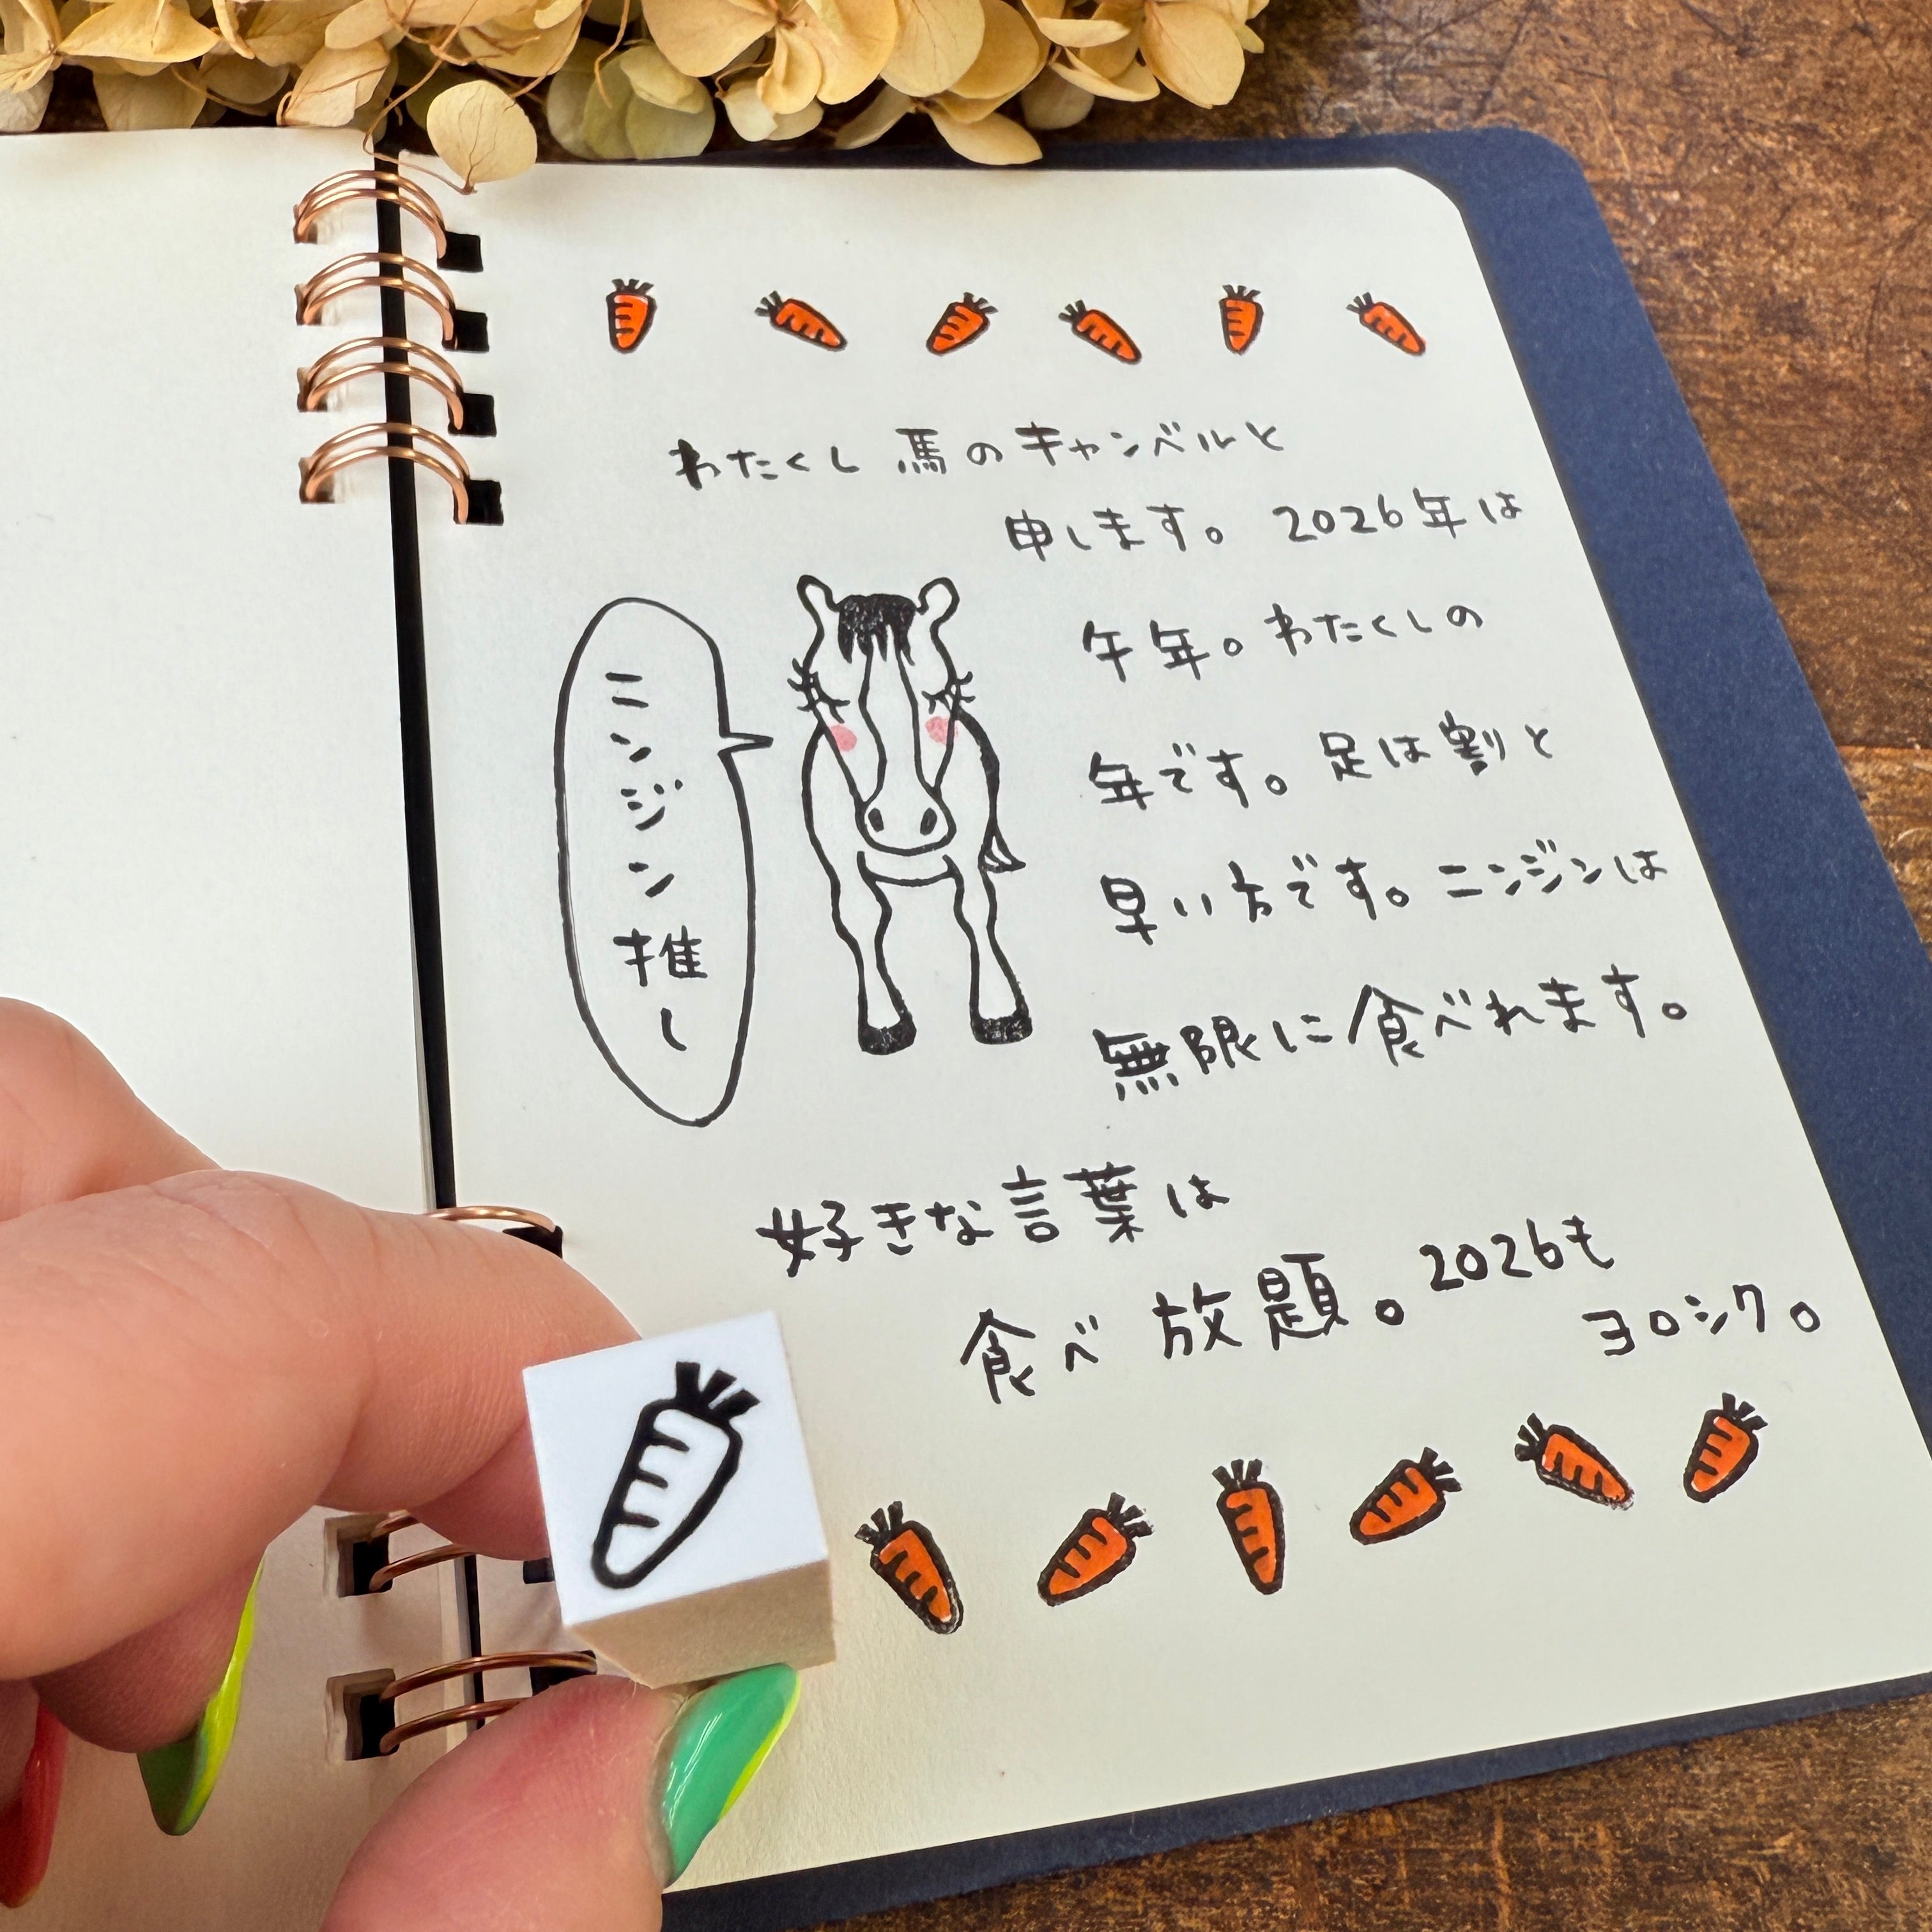 わたくし 馬のキャンベルと
申します。2026年は
午年。わたくしの
年です。足は割と
早い方です。ニンジンは
無限に食べれます。
ニンジン推し
好きな言葉は
食べ放題。2026も
ヨロシク。